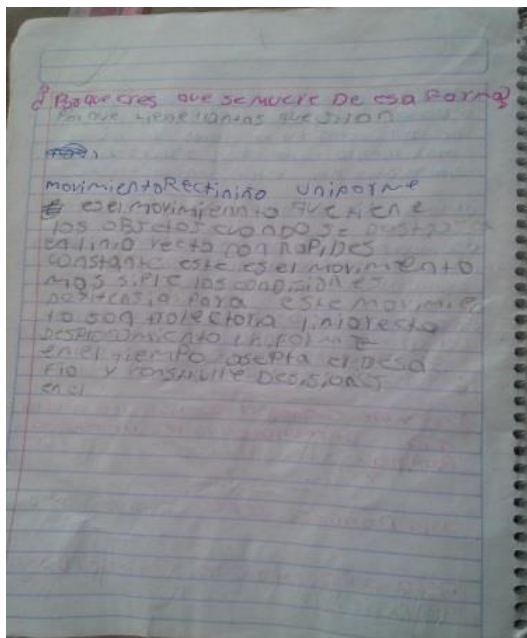 ¿Porque cres que se muere De esa Forma?
Por que tiene tantas que sison
movimiento Rectinino uniporme
es el movimiennto que tiene
los obJetos cuondo se
en linio recto con RaPides
constante este es el movimiento
mas siple los condisiones
para este movimie
to son trolectoria liniaresta
Desplosomiento uniforme
en el tiempo asepta el Desa
Fio y construlle Decisiones
en el